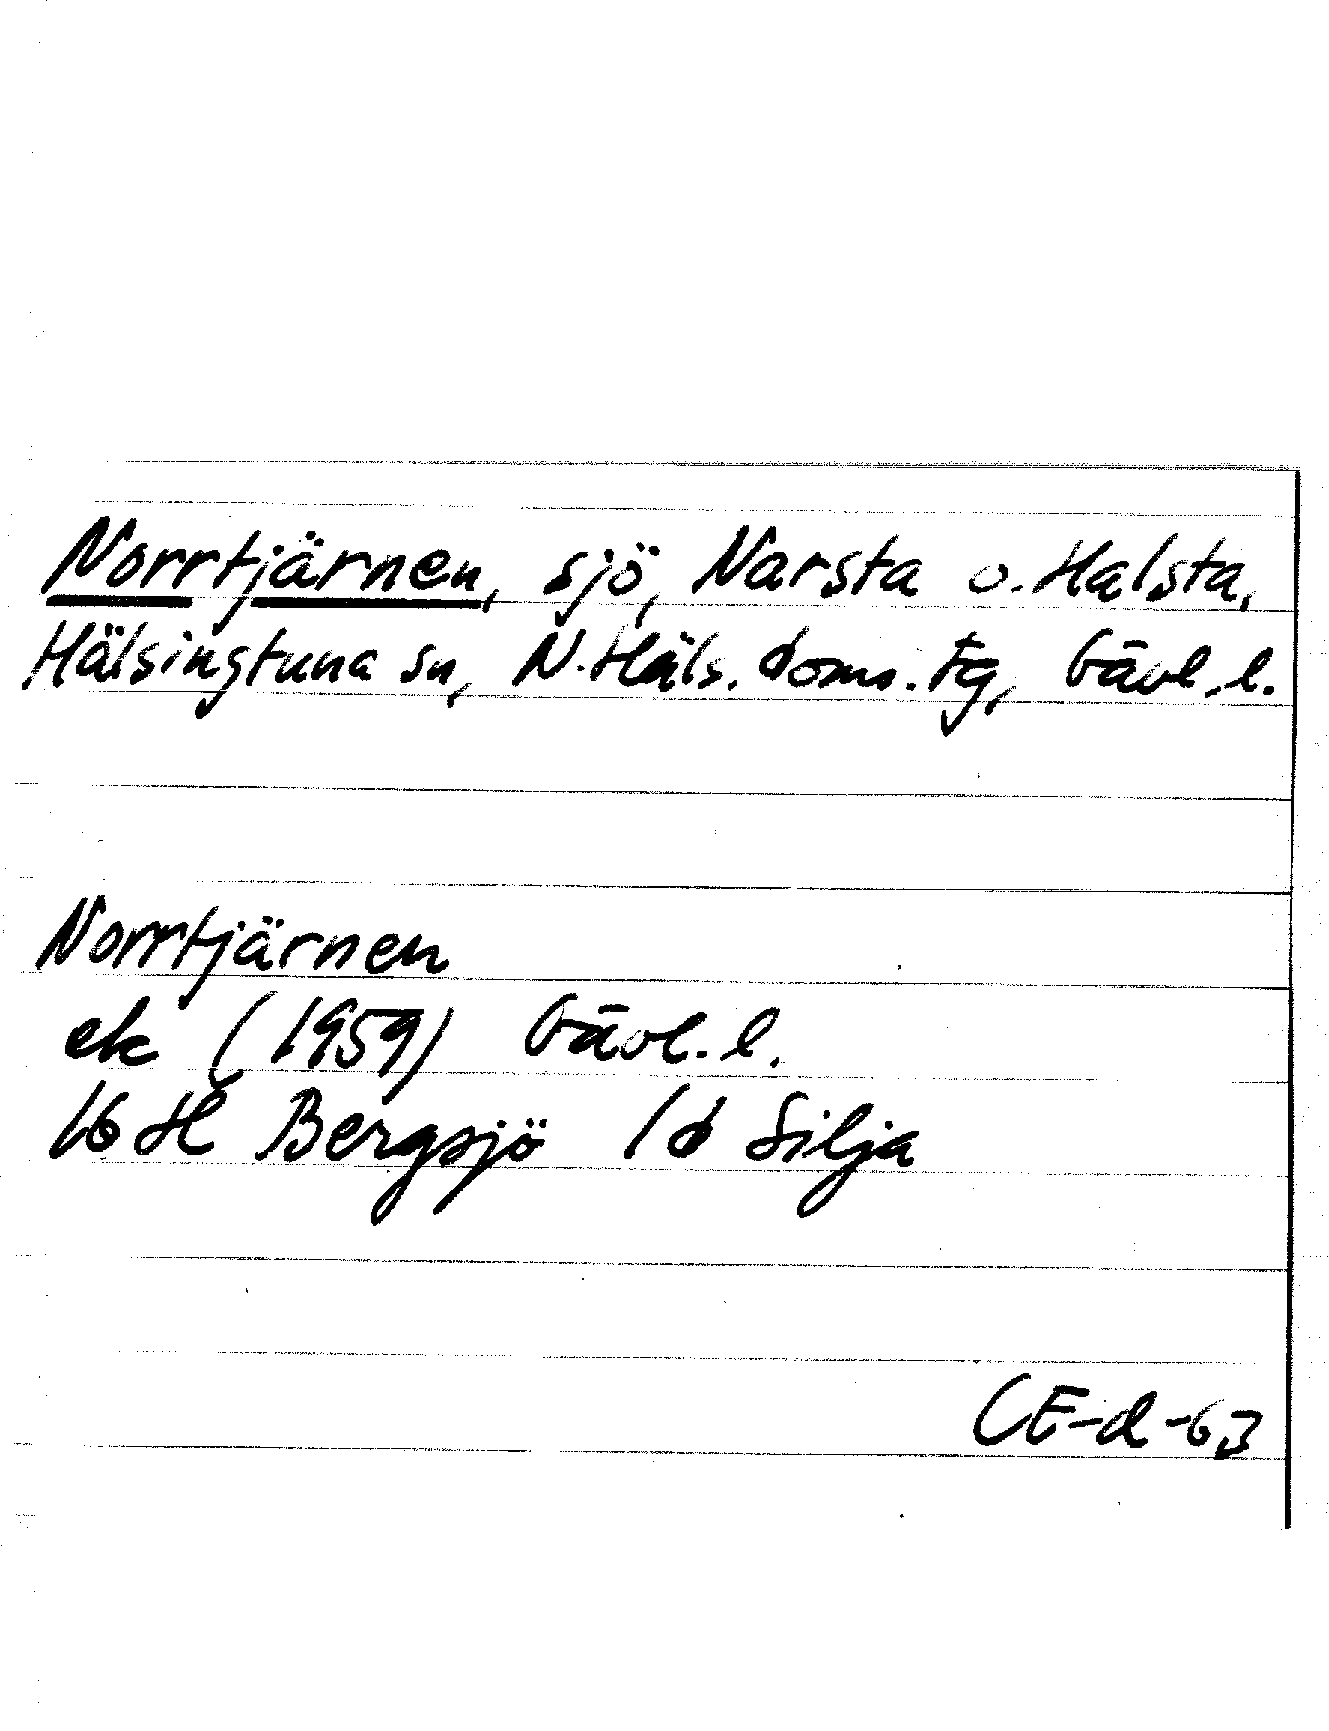 Norrtjärnen, sjö, Narsta o. Halsta,
Hälsingtuna sn, N. Häls. doms. tg, Gävl. l.
Norrtjärnen
ek (1959) Gävl. l.
16 H Bergsjö 1d Silja
CE-d-63